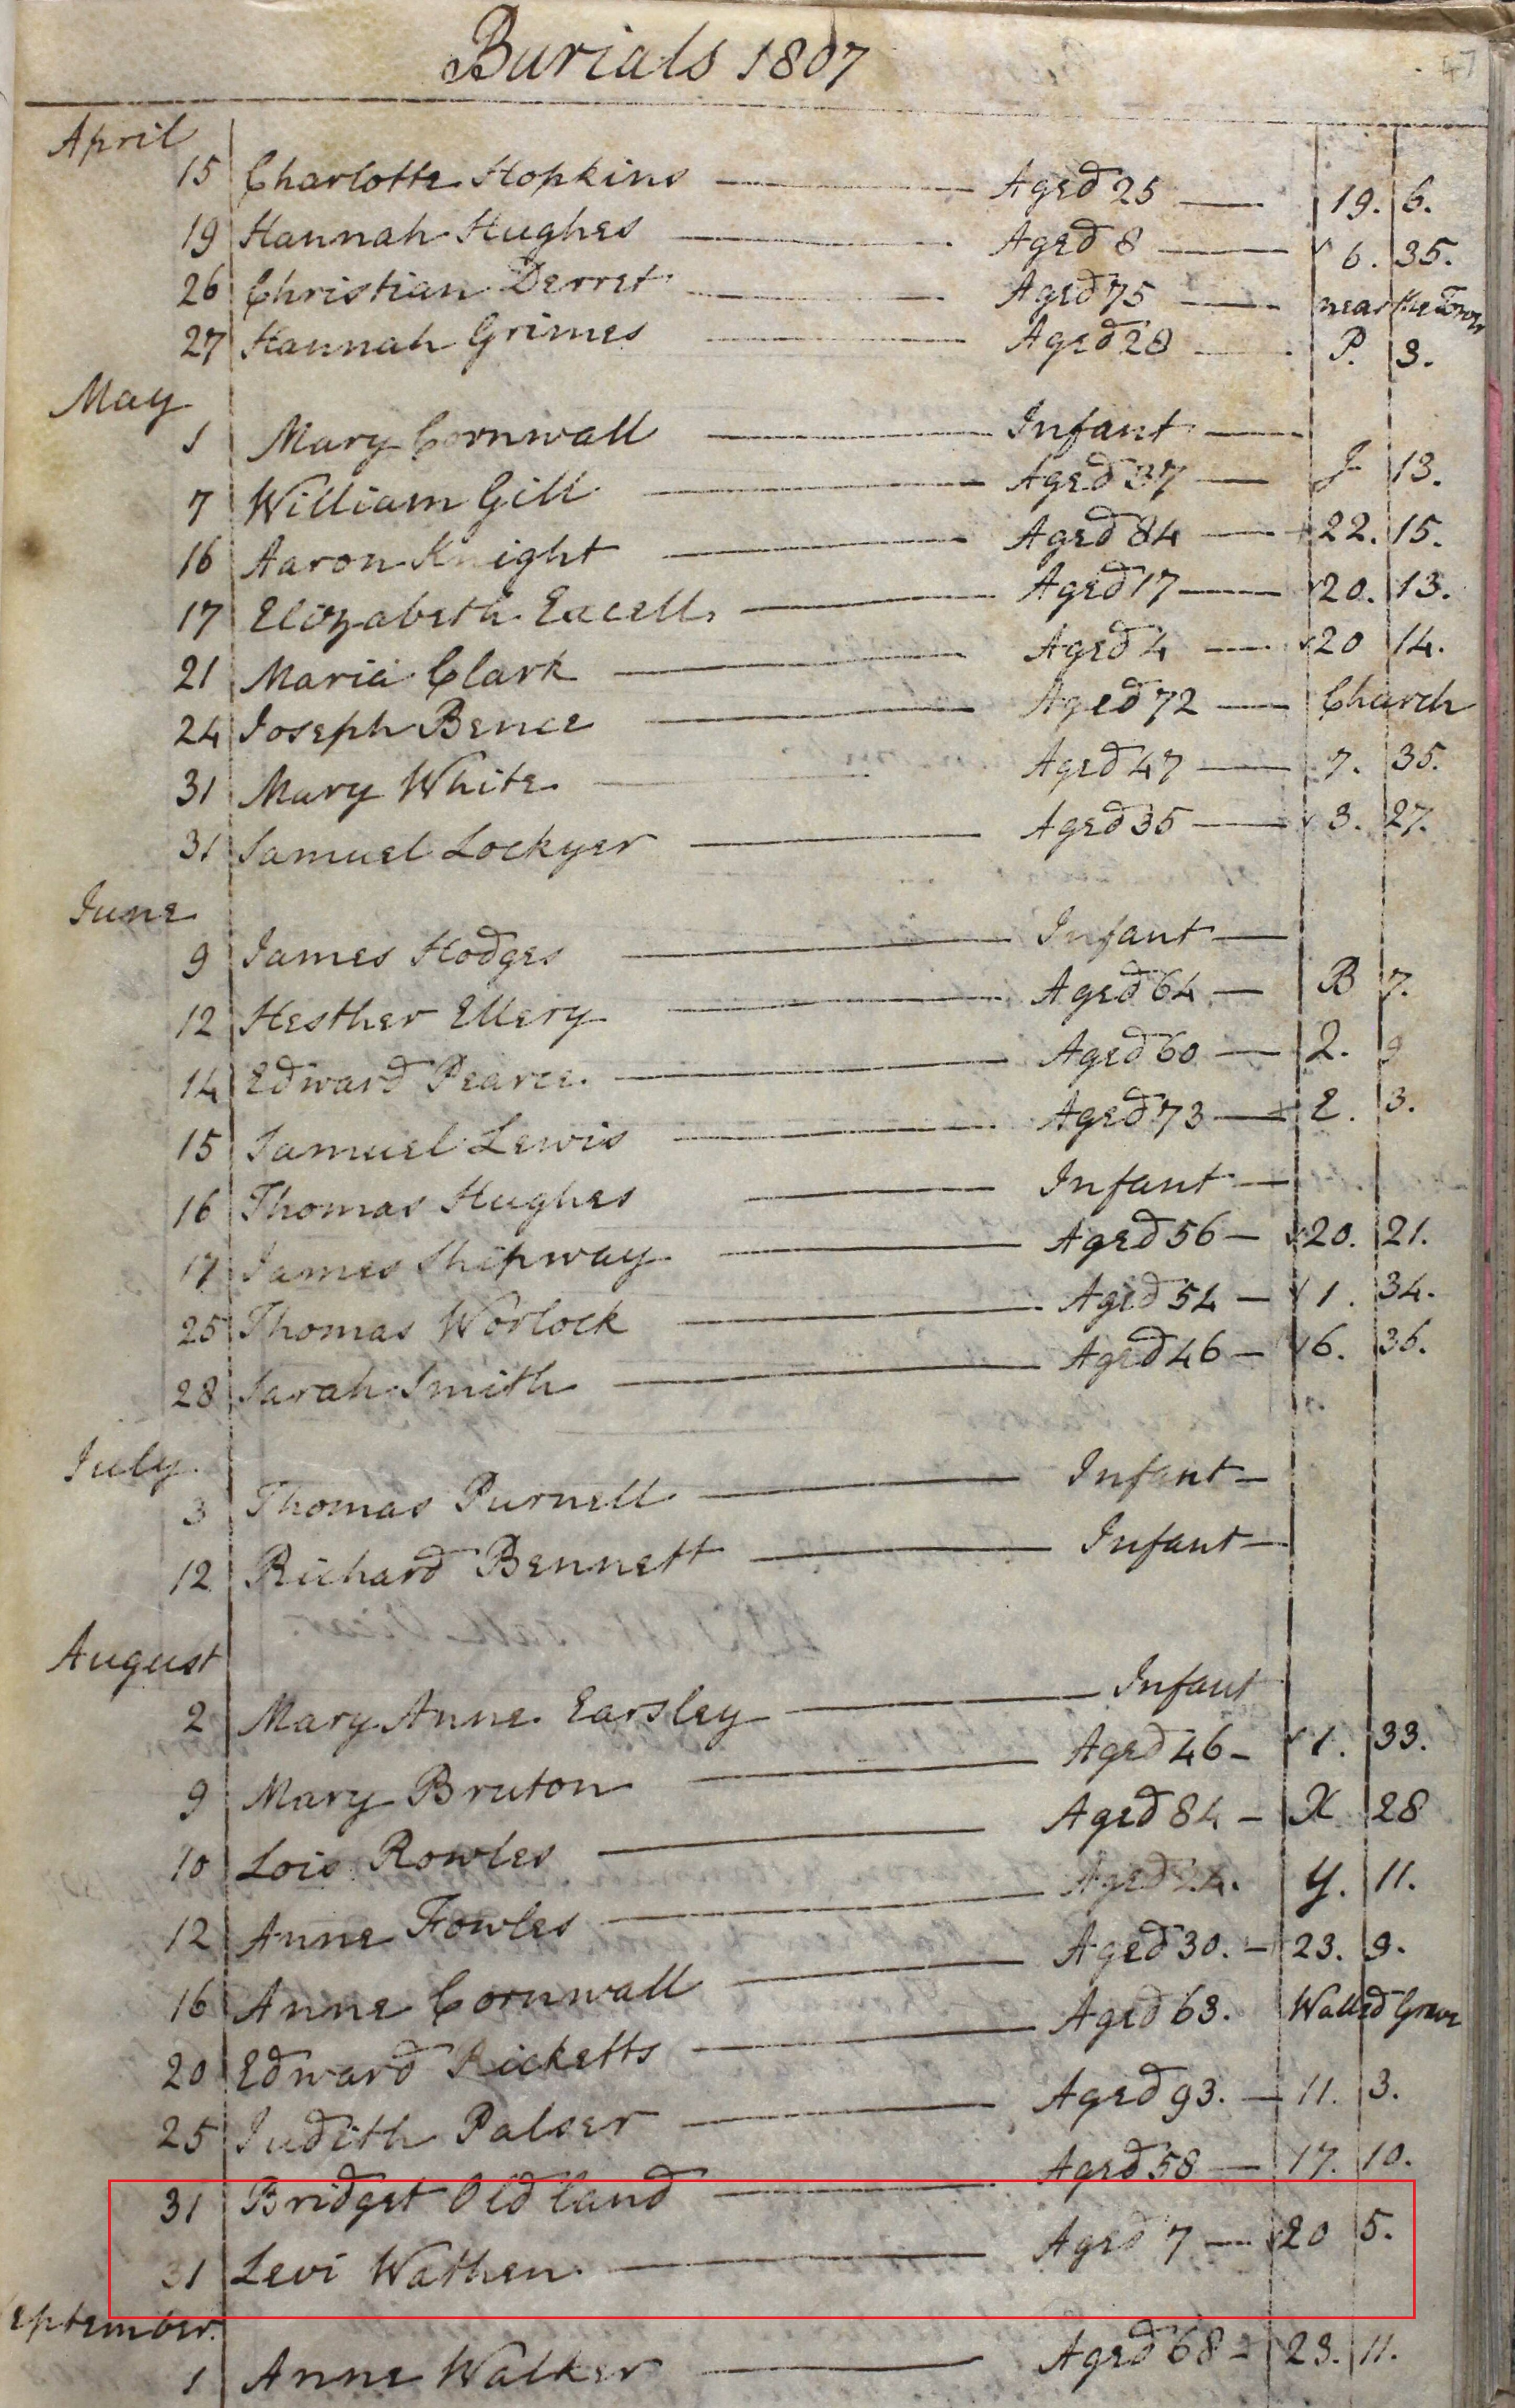 Burials 1807
47
April
15 Charlotte Hopkins Aged 25 19. 6.
19 Hannah Hughes Aged 8 6. 35.
26 Christian Derret Aged 75 near the Tower
27 Hannah Grimes Aged 28 P. 3.
May
1 Mary Cornwall Infant
7 William Gill Aged 37 J 13.
16 Aaron Knight Aged 84 22. 15.
17 Elizabeth Excell Aged 17 20. 13.
21 Maria Clark Aged 4 20 14.
24 Joseph Bence Aged 72 Church
31 Mary White Aged 47 7. 35.
31 Samuel Lockyer Aged 35 3. 27.
June
9 James Hodges Infant
12 Hesther Ellery Aged 64 B 7.
14 Edward Pearce Aged 60 2. 9
15 Samuel Lewis Aged 73 2. 3.
16 Thomas Hughes Infant
17 James Shipway Aged 56 20. 21.
25 Thomas Worlock Aged 54 1. 34.
28 Sarah Smith Aged 46 6. 36.
July
3 Thomas Purnell Infant
12 Richard Bennett Infant
August
2 Mary Anne Earsley Infant
9 Mary Bruton Aged 46 1. 33.
10 Lois Rowles Aged 84 X 28
12 Anne Fowles Aged 24. Y. 11.
16 Anne Cornwall Aged 30. 23. 9.
20 Edward Ricketts Aged 63. Walled Grave
25 Judith Palser Aged 93. 11. 3.
31 Bridget Oldland Aged 58 17. 10.
31 Levi Wathen Aged 7 20 5.
September
1 Anne Walker Aged 68 23. 11.